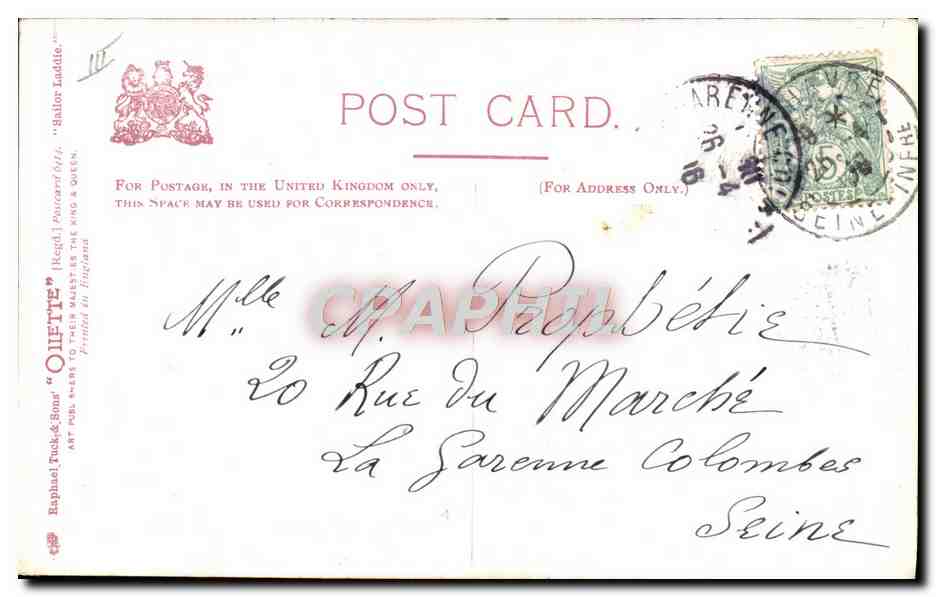 III
POST CARD.
FOR POSTAGE, IN THE UNITED KINGDOM ONLY,
THIS SPACE MAY BE USED FOR CORRESPONDENCE.
(FOR ADDRESS ONLY.)
Raphael Tuck & Sons' "OILETTE" [Regd.] Postcard 6414. "Sailor Laddie."
ART PUBLISHERS TO THEIR MAJESTIES THE KING & QUEEN.
Printed in England
GARENNE-COL
16 26 -4
HAVRE
SEINE INFRE
5
POSTES
CPAPHIL
Mlle M. Prophétie
20 Rue du Marché
La Garenne Colombes
Seine